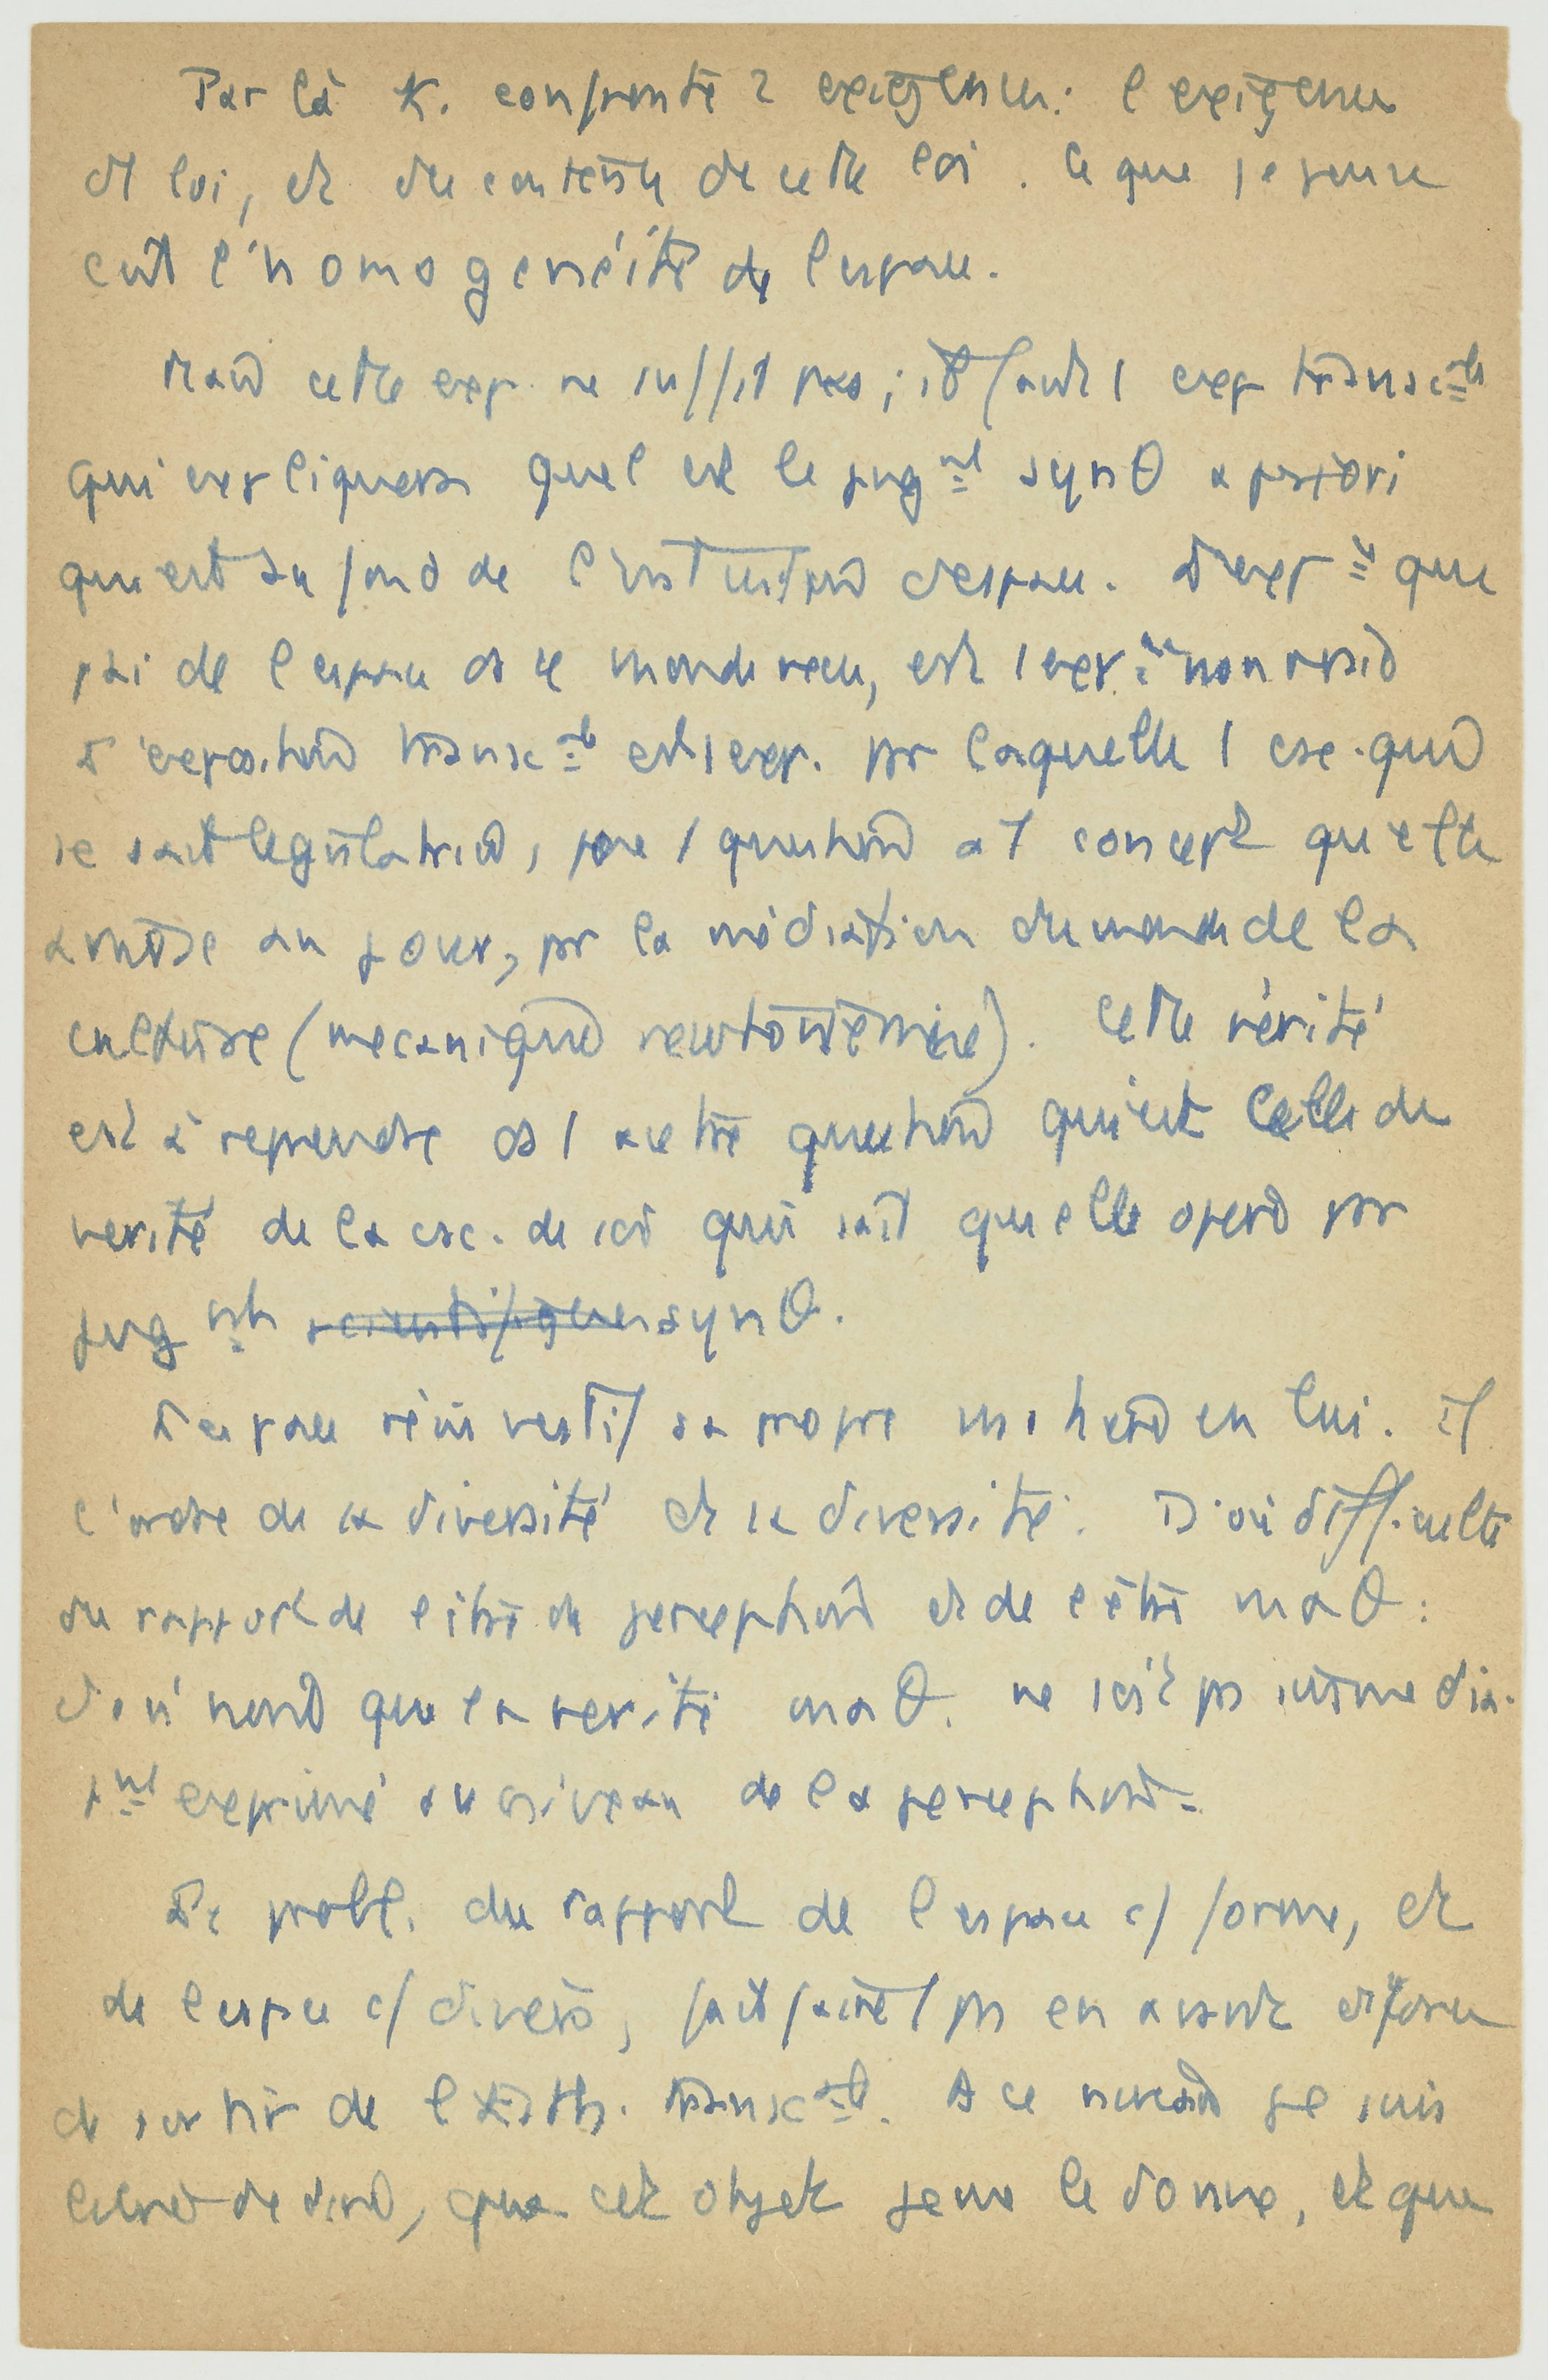 Par là K. confronte 2 exigences : l'exigence
de loi, et du contenu de cette loi. Ce que je pense
c'est l'homogénéité de l'espace.
Mais cette exp. ne suffit pas ; il faut 1 exp transc^le
qui expliquera quel est le jug^nt synθ a priori
qui est au fond de l'intuition d'espace. L'exp^ce que
j'ai de l'espace ds le monde vécu, est 1 exp^ce non
L'exposition transc^le est 1 exp. par laquelle 1 csc. qui
se sait législatrice, pose 1 question à 1 concept qu'elle
amène au jour, par la médiation du monde de la
culture (mécanique newtonienne). Cette vérité
est à reprendre ds 1 autre question qui est celle de
vérité de la csc. de soi qui sait qu'elle opère par
jug^nts scientifiques synθ.
L'espace réinvestit sa propre en lui. Il
l'ordre de la diversité et la diversité. D'où difficulté
du rapport de l'être de perception et de l'être maθ :
d'où vient que la vérité maθ. ne soit pas immédia-
t^nt exprimé au niveau de la perception.
Le probl. du rapport de l'espace c/ forme, et
de l'espace c/ divers, fait faire 1 pas en avant et force
de sortir de l'Esth. transc^le. A ce niveau je suis
de dire, que cet objet je me le donne, et que